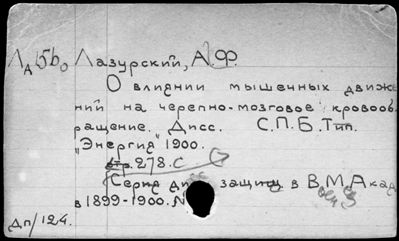 Лд 56о Лазурский, А.Ф.
О влиянии мышечных движе-
ний на черепно-мозговое кровооб-
ращение. Дисс. С.П.Б. Тип.
"Энергия" 1900.
стр. 278. С
Серия дисс защищ в В. М. Акад
в 1899-1900. №
Дп/124.